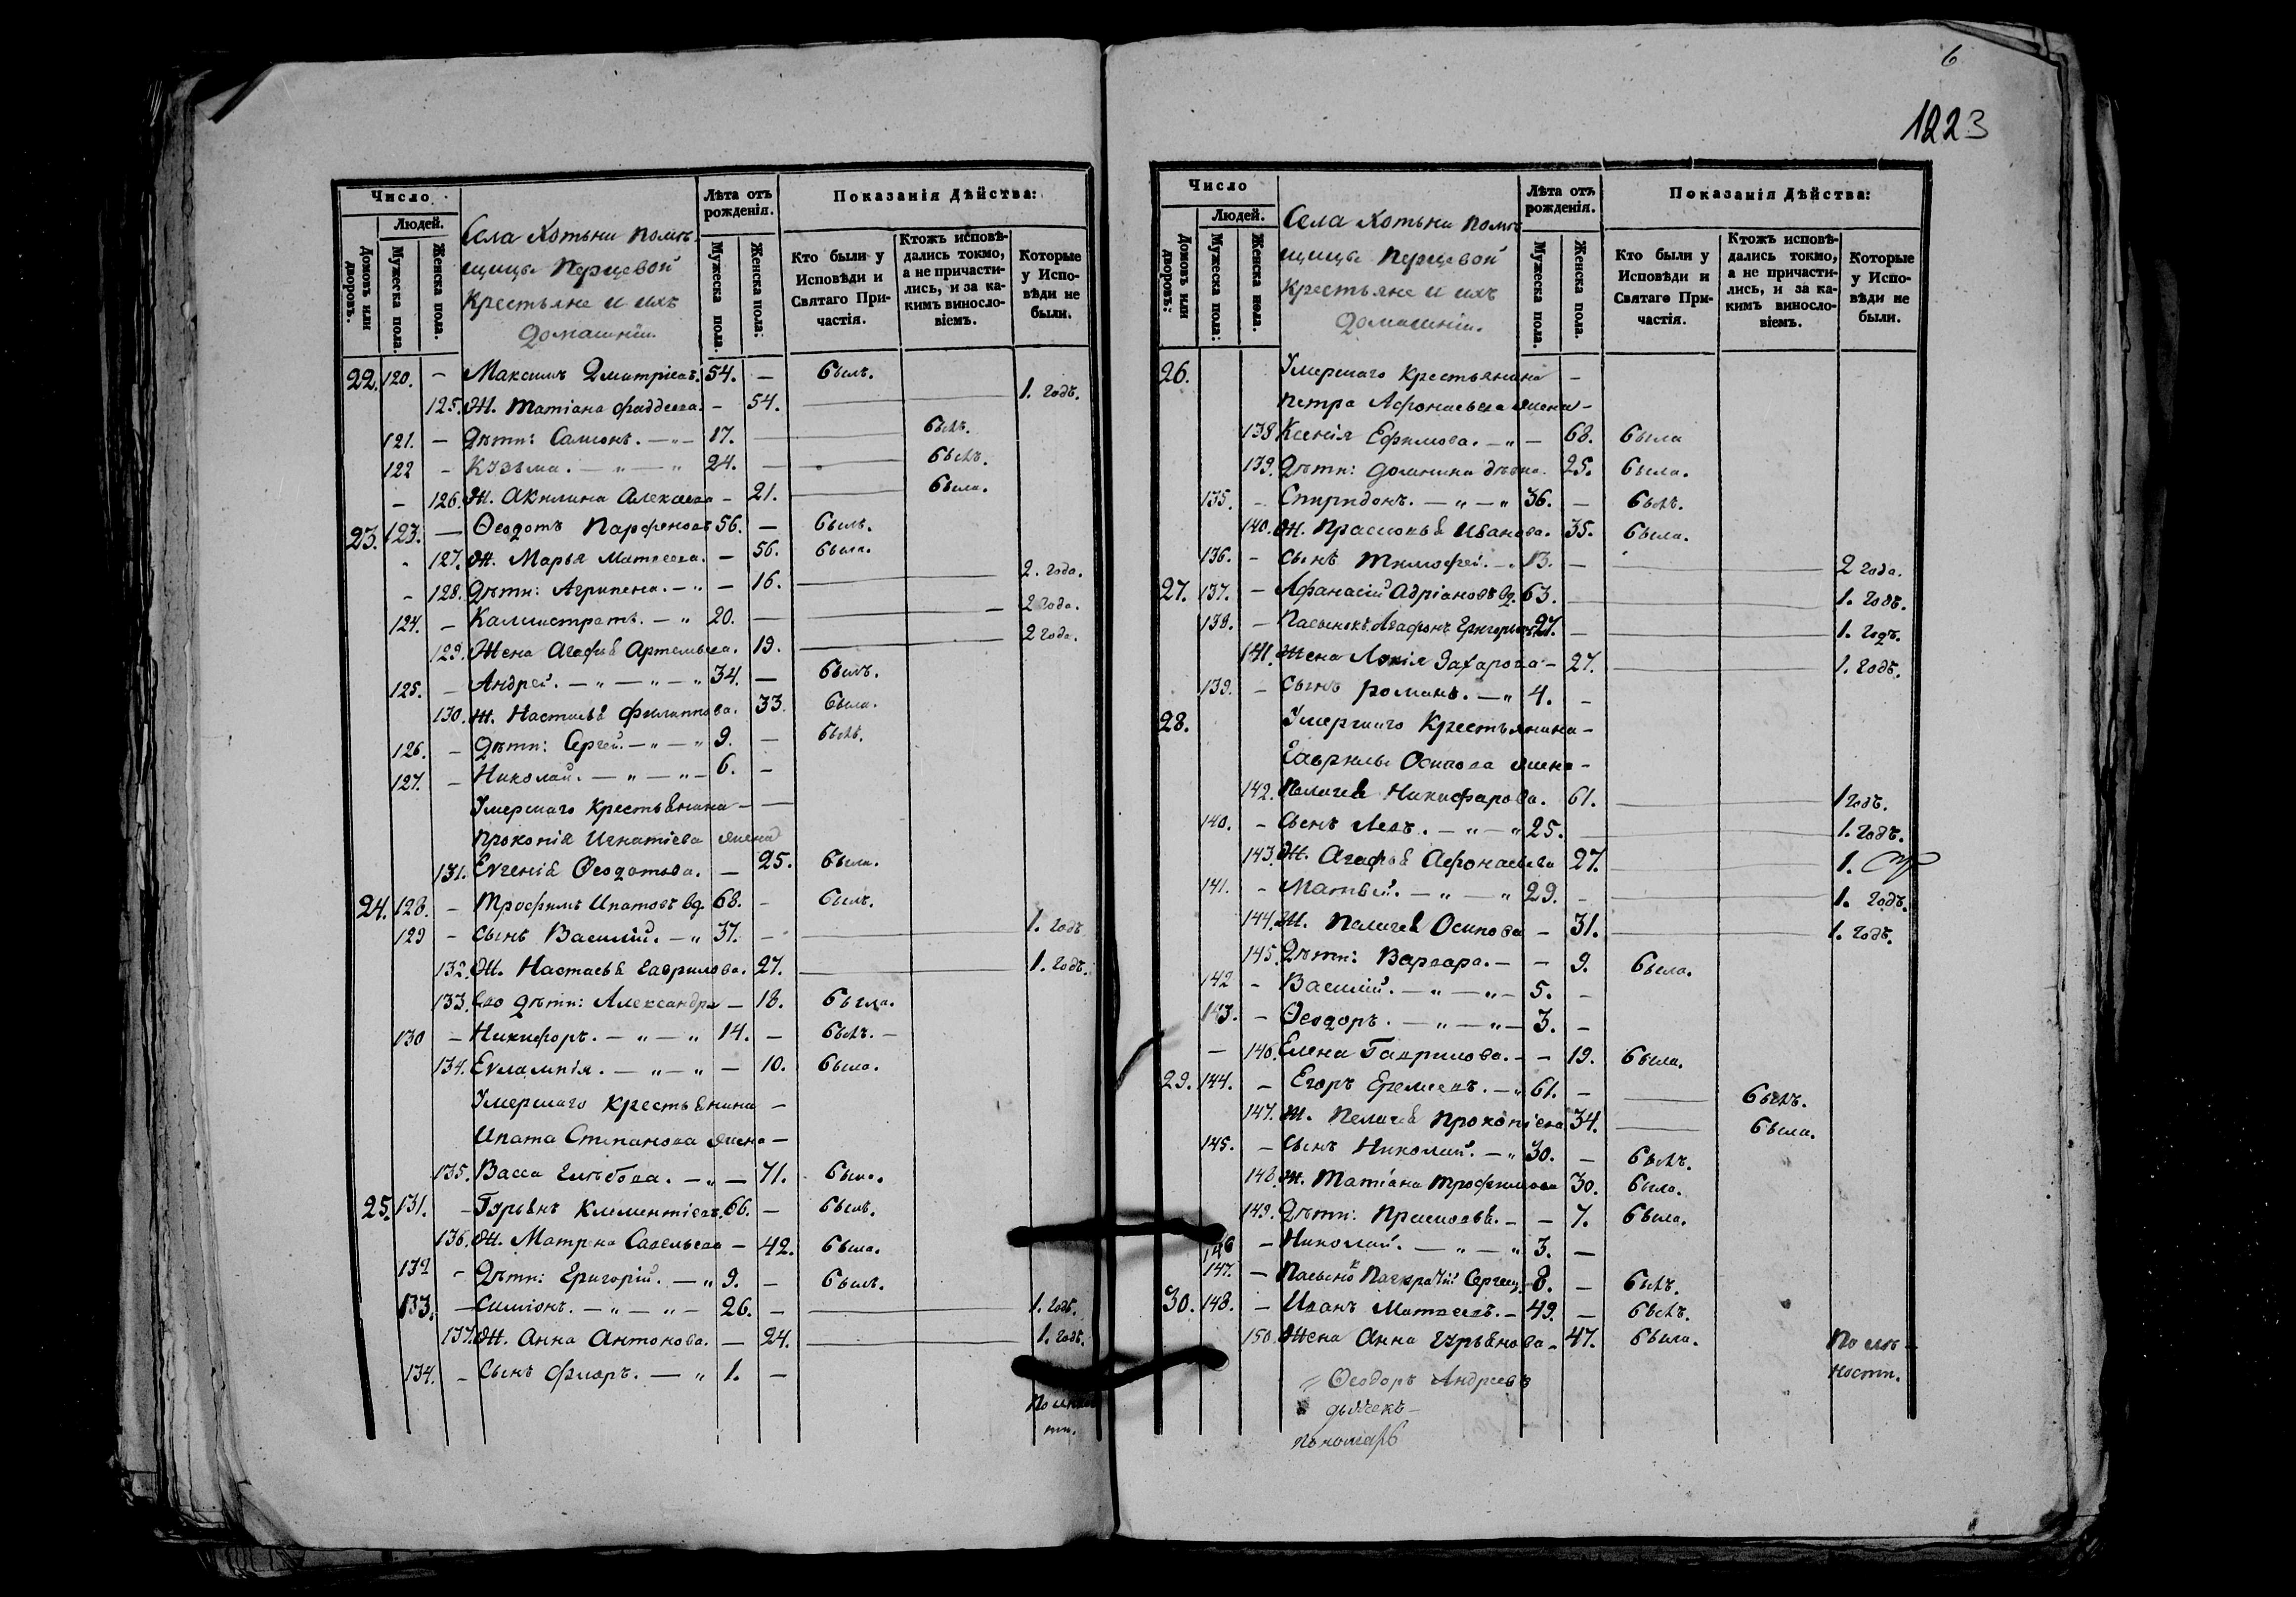 Число
Людей.
Домовъ или дворовъ.
Мужеска пола.
Женска пола.
Села Хотьни помѣ-
щицы Перцевой
Крестьяне и ихъ
домашніи.
Лѣта отъ рожденія.
Мужеска пола.
Женска пола:
Показанія Дѣйства:
Кто были у Исповѣди и Святаго Причастія.
Ктожъ исповѣдались токмо, а не причастились, и за какимъ винословіемъ.
Которые у Исповѣди не были.
22. 120. — Максимъ Дмитріевъ. 54. — былъ.
125. Ж. Татіана Фаддеева. — 54. 1. годъ.
121. — Дѣти: Самсонъ. — „ — 17. — былъ.
122 — Кузьма. — „ — „ 24. — былъ.
— 126. Ж. Акилина Алексеева — 21. была.
23. 123. — Ѳеодотъ Парфеновъ 56. — былъ.
127. Ж. Марья Матвеева. — 56. была.
128. Дѣти: Агрипена. — „ — 16. 2. года.
124. — Каллистратъ. — „ 20. — 2 года.
129. Жена Агафья Артемьева. 19. 2 года.
125. — Андрей. — „ — „ — „ 34. — былъ.
130. Ж. Настасья Филиппова. 33. была.
126. — Дѣти: Сергей. — „ — „ 9. — былъ.
127. — Николай. — „ — „ — 6. —
Умершаго крестьянина — —
Прокопія Игнатіева жена
131. Евгенія Ѳеодотова. — 25. была.
24. 128. — Трофимъ Ипатовъ вд. 68. — былъ.
129 — Сынъ Василій. — „ 37. — 1. годъ
132. Ж. Настасья Гаврилова. 27. 1. годъ.
133. Его дѣти: Александра — 18. была.
130 — Никифоръ. — „ — „ 14. — былъ. —
134. Евлампія. — „ — „ — 10. была.
Умершаго крестьянина —
Ипата Степанова жена —
135. Васса Глѣбова. — „ — 71. была.
25. 131. — Гурьянъ Климентіевъ. 66. — былъ.
136. Ж. Матрена Савельева — 42. была.
132 — Дѣти: Григорій. — „ 9. — былъ.
133. — Симіонъ. — „ — „ — 26. — 1. годъ.
137. Ж. Анна Антонова. — 24. 1. годъ.
134. — Сынъ Флоръ. — „ 1. —
6
1223
Число
Людей.
Домовъ или дворовъ:
Мужеска пола:
Женска пола.
Села Хотьни помѣ
щицы Перцевой
Крестьяне и ихъ
домашніи.
Лѣта отъ рожденія.
Мужеска пола.
Женска пола.
Показанія Дѣйства:
Кто были у Исповѣди и Святаго Причастія.
Ктожъ исповѣдались токмо, а не причастились, и за какимъ винословіемъ.
Которые у Исповѣди не были.
26. Умершаго крестьянина —
Петра Афонасьева жена —
138 Ксенія Ефимова. — „ — 68. была
139. Дѣти: Домнина дѣвка. 25. была.
135. — Спиридонъ. — „ — „ 36. — былъ.
140. Ж. Прасковья Иванова. 35. была.
136. — Сынъ Тимофей. — . 13. — 2 года.
27. 137. — Афанасій Адріановъ вд. 63. 1. годъ.
138. — Пасынокъ Агафонъ Григорьевъ 27. — 1. годъ.
141. Жена Лукія Захарова — 27. 1. годъ.
139. — Сынъ Романъ. — „ 4. —
28. Умершаго Крестьянина —
Гаврилы Осипова жена —
142. Пелагея Никифорова. 61. 1 годъ.
140. — Сынъ Левъ. — „ — „ 25. 1. годъ.
143. Ж. Агафья Афонасьева 27. 1.
141. — Матвей. — „ — „ 29. — 1. годъ.
144. Ж. Пелагея Осипова — 31. 1. годъ.
145. Дѣти: Варвара. — — 9. была.
142 — Василій. — „ — „ — 5. —
143. — Ѳеодоръ. — „ — „ — 3. —
— 146. Елена Гаврилова. — — 19. была.
29. 144. — Егоръ Еремеевъ. — „ 61. — былъ.
147. Ж. Пелагея Прокопіева 34. была.
145. — Сынъ Николай. — „ 30. — былъ.
148. Ж. Татіана Трофимова 30. была.
149. Дѣти: Прасковья. — — 7. была.
146 — Николай. — „ — „ 3. —
147. — Пасынокъ Сергеевъ 8. — былъ.
30. 148. — Иванъ Матвеевъ. — 49. — былъ.
150. Жена Анна Гурьянова — 47. была.
Ѳеодоръ Андреевъ
дьячекъ —
пономарь